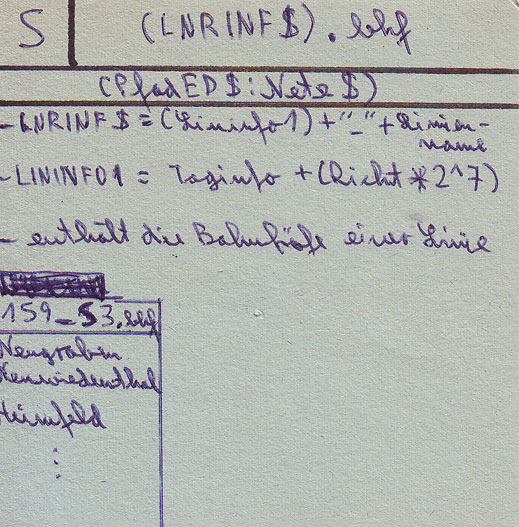 S (LNRINF$).bhf
(PfadED$:Netz$)
- LNRINF$ = (Lininfo1)+"_"+Linien-
name
- LININFO1 = Taginfo + (Richt*2^7)
- enthält die Bahnhöfe einer Linie
159_S3.bhf
Neugraben
Neuwiedenthal
Heimfeld
⋮